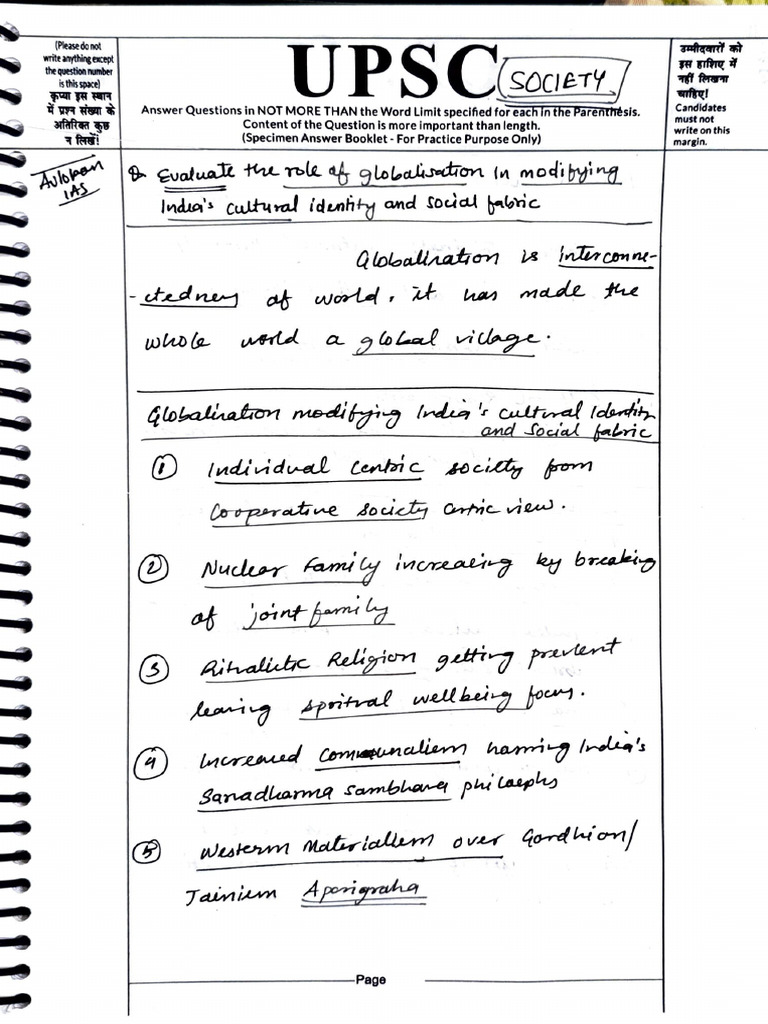 (Please do not
write anything except
the question number
is this space)
कृप्या इस स्थान
में प्रश्न संख्या के
अतिरिक्त कुछ
न लिखें!
UPSC
SOCIETY
Answer Questions in NOT MORE THAN the Word Limit specified for each in the Parenthesis.
Content of the Question is more important than length.
(Specimen Answer Booklet - For Practice Purpose Only)
उम्मीदवारों को
इस हाशिए में
नहीं लिखना
चाहिए!
Candidates
must not
write on this
margin.
IAS
Q Evaluate the role of globalisation in modifying
India's cultural identity and social fabric
Globalisation is interconne-
-ctedness of world. it has made the
whole world a global village.
Globalisation modifying India's cultural Identity
and social fabric
① Individual Centric society from
Cooperative society centric view.
② Nuclear Family increasing by breaking
of joint family
③ Ritualistic Religion getting prevlent
leaving spritual wellbeing focus.
④ Increased communalism harming India's
Sarvadharma sambhava
⑤ Western Materialism over Gandhian/
Jainism Aparigraha
Page